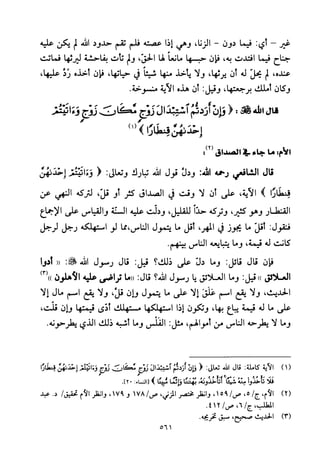 غير – أي: فيما دون – الزنا، وهي إذا عصته فلم تقم حدود الله لم يكن عليه
جناح فيما افتدت به، فإن حبسها مانعاً لها الحقّ، ولم تأت بفاحشة ليرثها فماتت
عنده، لم يحلّ له أن يرثها، ولا يأخذ منها شيئاً في حياتها، فإن أخذه رُدّ عليها،
وكان أملك برجعتها، وقيل: أن هذه الآية منسوخة.
قال الله ﷻ: ﴿ وَإِنْ أَرَدتُّمُ ٱسْتِبْدَالَ زَوْجٍ مَّكَانَ زَوْجٍ وَءَاتَيْتُمْ
إِحْدَىٰهُنَّ قِنطَارًا ﴾ (١)
الأم: ما جاء في الصداق (٢):
قال الشافعي رحمه الله: ودلّ قول الله تبارك وتعالى: ﴿ وَءَاتَيْتُمْ إِحْدَىٰهُنَّ
قِنطَارًا ﴾ الآية، على أن لا وقت في الصداق كثر أو قلّ، لتركه النهي عن
القنطار وهو كثير، وتركه حدّاً للقليل، ودلّت عليه السنّة والقياس على الإجماع
فنقول: أقلّ ما يجوز في المهر، أقل ما يتمول الناس، مما لو استهلكه رجل لرجل
كانت له قيمة، وما يتبايعه الناس بينهم.
فإن قال قائل: وما دلّ على ذلك؟ قيل: قال رسول الله ﷺ: « أدوا
العلائق » قيل: وما العلائق يا رسول الله؟ قال: «ما تراضى عليه الأهلون» (٣)
الحديث، ولا يقع اسم عَلَق إلا على ما يتمول وإن قلّ، ولا يقع اسم مال إلا
على ما له قيمة يباع بها، وتكون إذا استهلكها مستهلك أدّى قيمتها وإن قلّت،
وما لا يطرحه الناس من أموالهم، مثل: الفَلْس وما أشبه ذلك الذي يطرحونه.
(١) الآية كاملة: قال الله تعالى: ﴿ وَإِنْ أَرَدتُّمُ ٱسْتِبْدَالَ زَوْجٍ مَّكَانَ زَوْجٍ وَءَاتَيْتُمْ إِحْدَىٰهُنَّ قِنطَارًا
فَلَا تَأْخُذُوا۟ مِنْهُ شَيْـًٔا ۚ أَتَأْخُذُونَهُۥ بُهْتَـٰنًا وَإِثْمًا مُّبِينًا ﴾ [النساء: ٢٠].
(٢) الأم، ج/ ٥، ص/ ١٥٩، وانظر مختصر المزني، ص/ ١٧٨ و ١٧٩، وانظر الأم تحقيق/ د. عبد
المطلب، ج/ ٦، ص/ ٤١٢.
(٣) الحديث صحيح، سبق تخريجه.
٥٦١